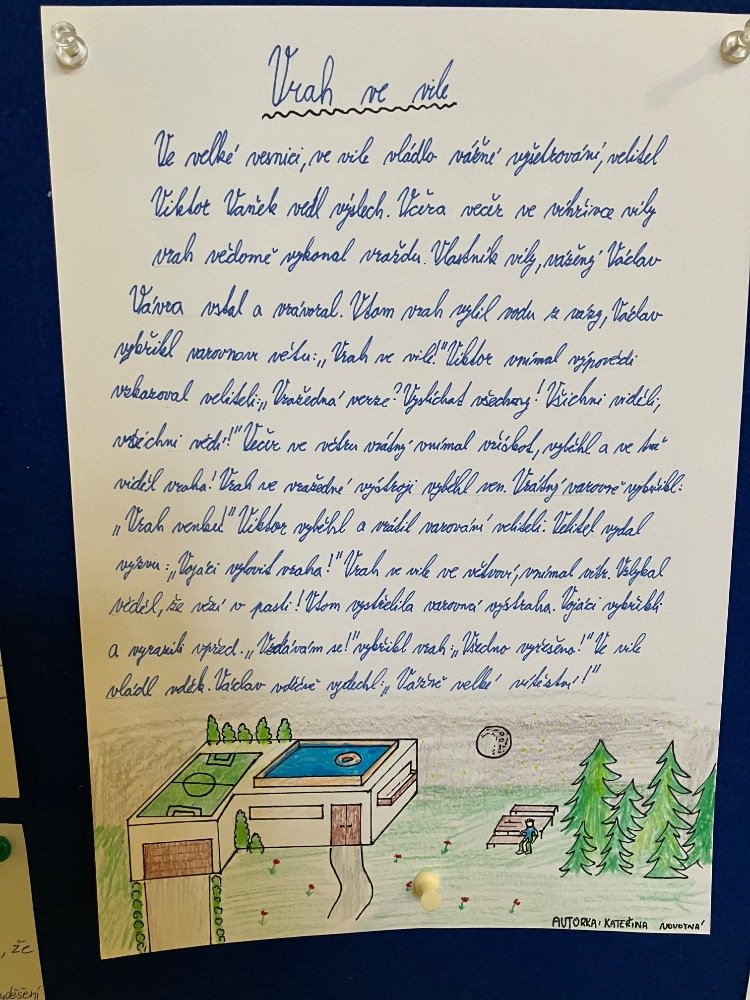 Vrah ve vile
Ve velké vesnici, ve vile vládlo vážné vyšetřování, velitel
Viktor Vaněk vedl výslech. Včera večer ve vířivce vily
vrah vědomě vykonal vraždu. Vlastník vily, vážený Václav
Vávra vstal a vrávoral. Vtom vrah vylil vodu z vázy, Václav
vykřikl varovnou větu: „Vrah ve vile!" Viktor vnímal výpovědi
vzkazoval veliteli: „Vražedná verze? Vyslíchat všechny! Všichni viděli,
všichni vědí!" Večer ve větru vrátný vnímal vřískot, vyběhl a ve tmě
viděl vraha! Vrah ve vražedné výstroji vyběhl ven. Vrátný varovně vykřikl:
„Vrah venku!" Viktor vyběhl a vrátil varování veliteli. Velitel vydal
výzvu: „Vojáci vylovit vraha!" Vrah ve vile ve větvoví, vnímal vítr. Vzlykal
věděl, že vězí v pasti! Vtom vystřelila varovná výstraha. Vojáci vykřikli
a vyrazili vpřed. „Vzdávám se!" vykřikl vrah: „Všedno vyřešeno!" Ve vile
vládl vděk. Václav vděčně vydechl: „Vážně velké vítěství!"
AUTORKA: KATEŘINA NOVOTNÁ
, že